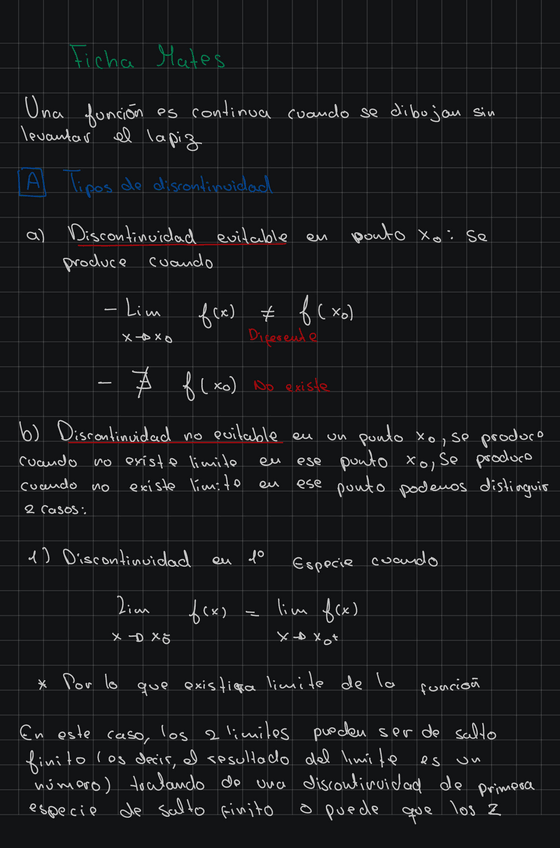 Ficha Mates
Una función es continua cuando se dibujan sin
levantar el lapiz
A Tipos de discontinuidad
a) Discontinuidad evitable en punto x₀: Se
produce cuando
- Lim f(x) ≠ f(x₀)
x→x₀ Diferente
- ∄ f(x₀) No existe
b) Discontinuidad no evitable en un punto x₀, se produce
cuando no existe limite en ese punto x₀, Se produce
cuando no existe limite en ese punto podemos distinguir
2 casos:
1) Discontinuidad en 1º Especie cuando
Lim f(x) = lim f(x)
x→x₀⁻ x→x₀⁺
* Por lo que existira limite de la función
En este caso, los 2 limites pueden ser de salto
finito (es decir, el resultado del limite es un
número) tratando de una discontinuidad de primera
especie de salto finito o puede que los 2